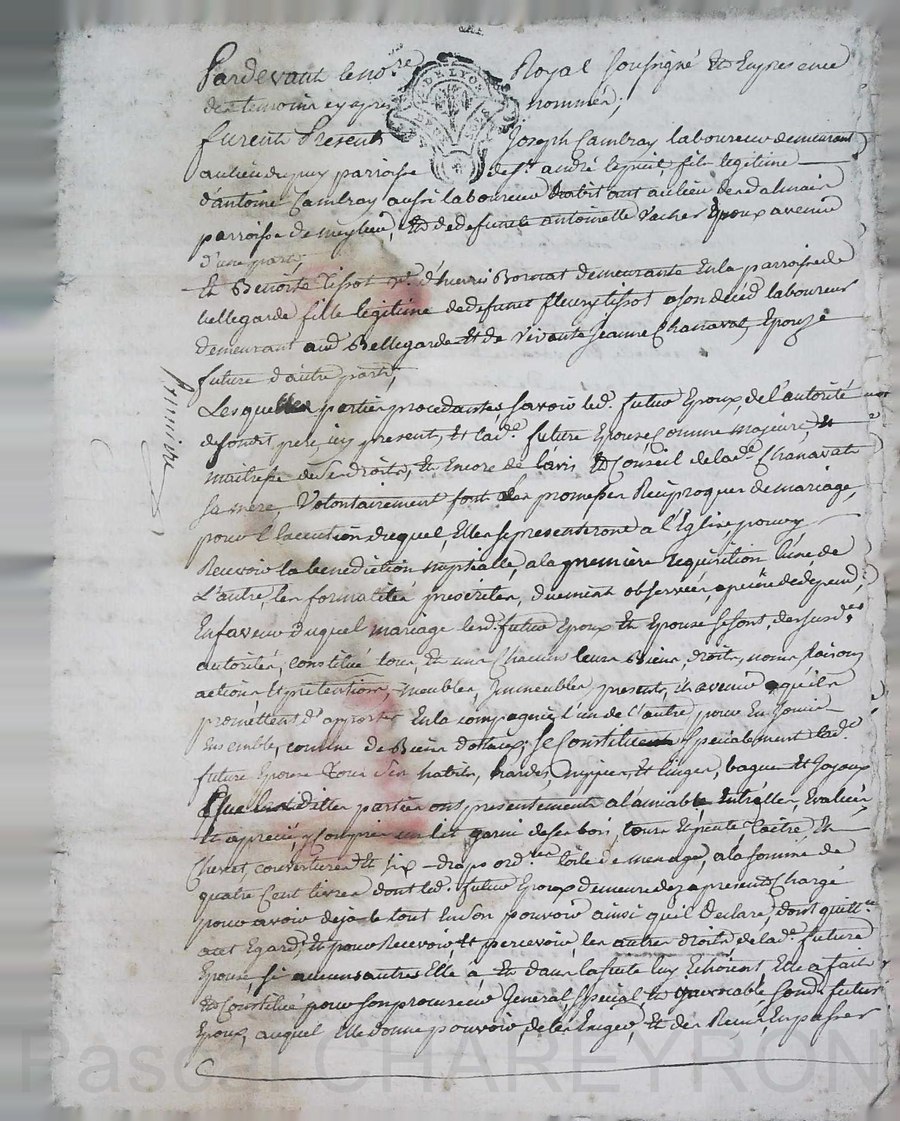 Pardevant le no.re Royal soussigné Et En presence
des temoins cy apres nommés;
furent Presents Joseph Cambray laboureur demeurant
au lieu du puy parroisse de st. andré le puit, fils legitime
d'antoine Cambray aussi laboureur au lieu
parroisse de meylieu, Et de defunte antoinette vacher Epoux avenir
d'une part;
Et Benoite tissot d'henris Bornat demeurante En la parroisse de
bellegarde fille legitime de defunt fleury tissot a son decéd laboureur
demeurant aud Bellegarde Et de vivante jeanne Chanavat, Epouze
future d'autre part;
Premiere
Lesquelles parties procedantes savoir led. futur Epoux, de l'autorité
de sondit pere, icy present, Et lad.e future Epouse, Comme majeure, et
maitresse de ses droits, Et Encore de l'avis Et Conseil de lad.e Chanavat
sa mere Volontairement font des promesses Reciproques de mariage,
pour l'Execution duquel, Elles se presenteront a l'Eglise, pour y
Recevoir la benediction nuptialle, a la premiere requisition l'une de
L'autre, les formalités prescrites, duement observées a peine de depend;
En faveur duquel mariage lesd. futur Epoux Et Epouse se sont, des susd.es
autorités, constitué tous, Et un Chacuns leurs Biens, droits, noms, raisons
actions Et pretentions, meubles, Immeubles presents, Et avenir qu'ils
promettent d'apporter En la compagnie l'un de l'autre pour En jouir
Ensemble, comme de Biens dotaux; se Constituent specialement lad.e
future Epouse tous ses habits, hardes, nippes, Et linges, bagues Et joyaux
Que lesdittes parties ont presentement a l'amiable Entr'elles, Evaluées
Et apreciés, y Compris un lit garni de son bois, tours Et pente Et
Chevet, couverture Et six draps ord.res toile de menage, a la somme de
quatre Cent livres dont led. futur Epoux demeure dez a present Chargé
pour avoir deja le tout En son pouvoir ainsi qu'il declare, dont quitt.e
a cet Egard, Et pour Recevoir Et percevoir les autres droits de lad.e future
Epouse, si aucuns autres Elle à Et dans la suite luy Echoient, Elle a fait
Et Constitué pour son procureur General, special Et irrevocable sond. futur
Epoux, auquel Elle donne pouvoir, de les Exiger, Et des Reçus, En passer
DE LYON
Pascal CHAREYRON